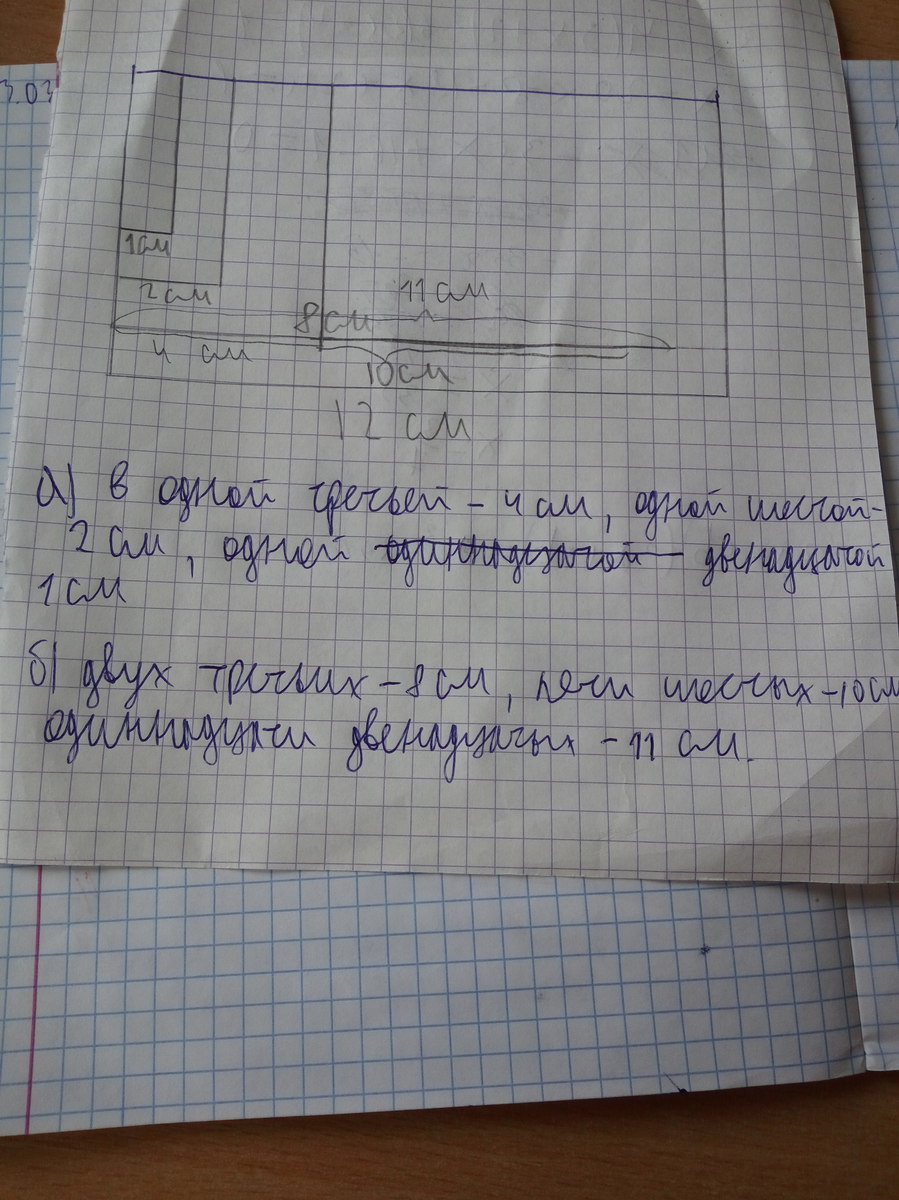 3.03
1см
2см
11 см
8 см
4 см
10см
12 см
а) в одной третьей - 4 см, одной шестой-
2 см, одной одиннадцатой двенадцатой
1 см
б) двух третьих - 8 см, пяти шестых - 10см
одиннадцати двенадцатых - 11 см.